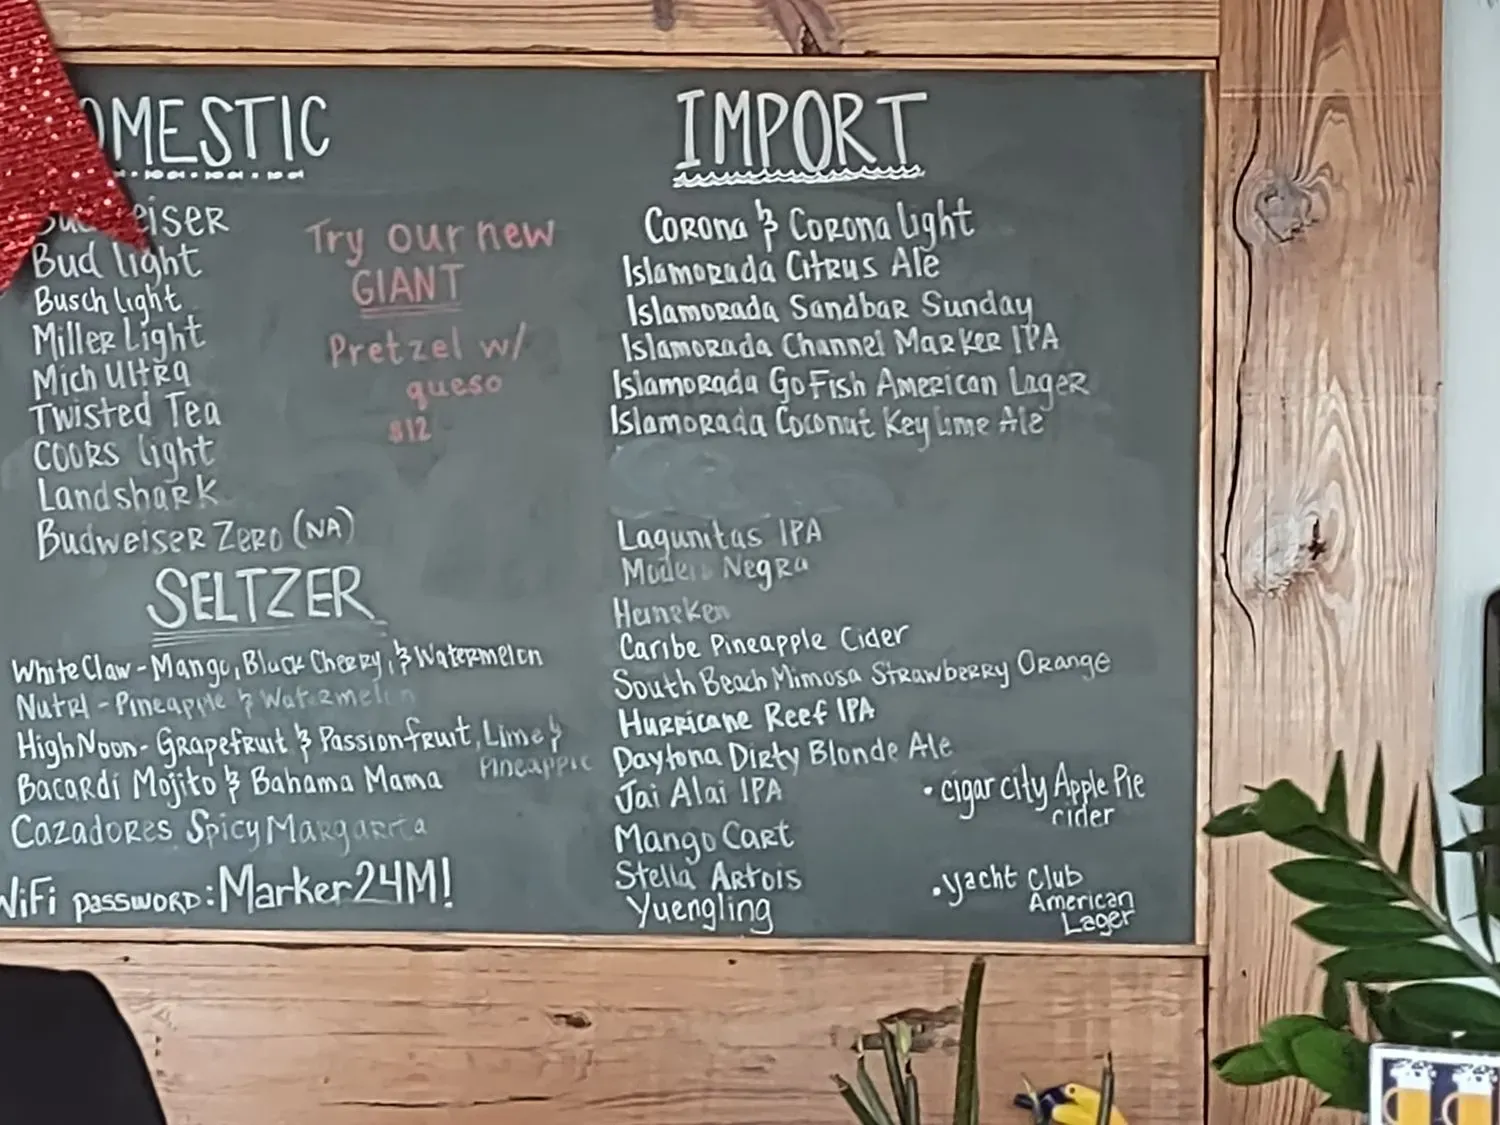 DOMESTIC
Budweiser
Bud light
Busch light
Miller Light
Mich Ultra
Twisted Tea
Coors light
Landshark
Budweiser Zero (NA)
Try our new
GIANT
Pretzel w/
queso
$12
SELTZER
White Claw - Mango, Black Cherry, & Watermelon
Nutrl - Pineapple & Watermelon
High Noon - Grapefruit & Passionfruit, Lime &
Pineapple
Bacardi Mojito & Bahama Mama
Cazadores Spicy Margarita
WiFi password: Marker24M!
IMPORT
Corona & Corona light
Islamorada Citrus Ale
Islamorada Sandbar Sunday
Islamorada Channel Marker IPA
Islamorada Go Fish American Lager
Islamorada Coconut Key lime Ale
Lagunitas IPA
Modelo Negra
Heineken
Caribe Pineapple Cider
South Beach Mimosa Strawberry Orange
Hurricane Reef IPA
Daytona Dirty Blonde Ale
Jai Alai IPA
Mango Cart
Stella Artois
Yuengling
• cigar city Apple Pie
cider
• yacht Club
American
Lager